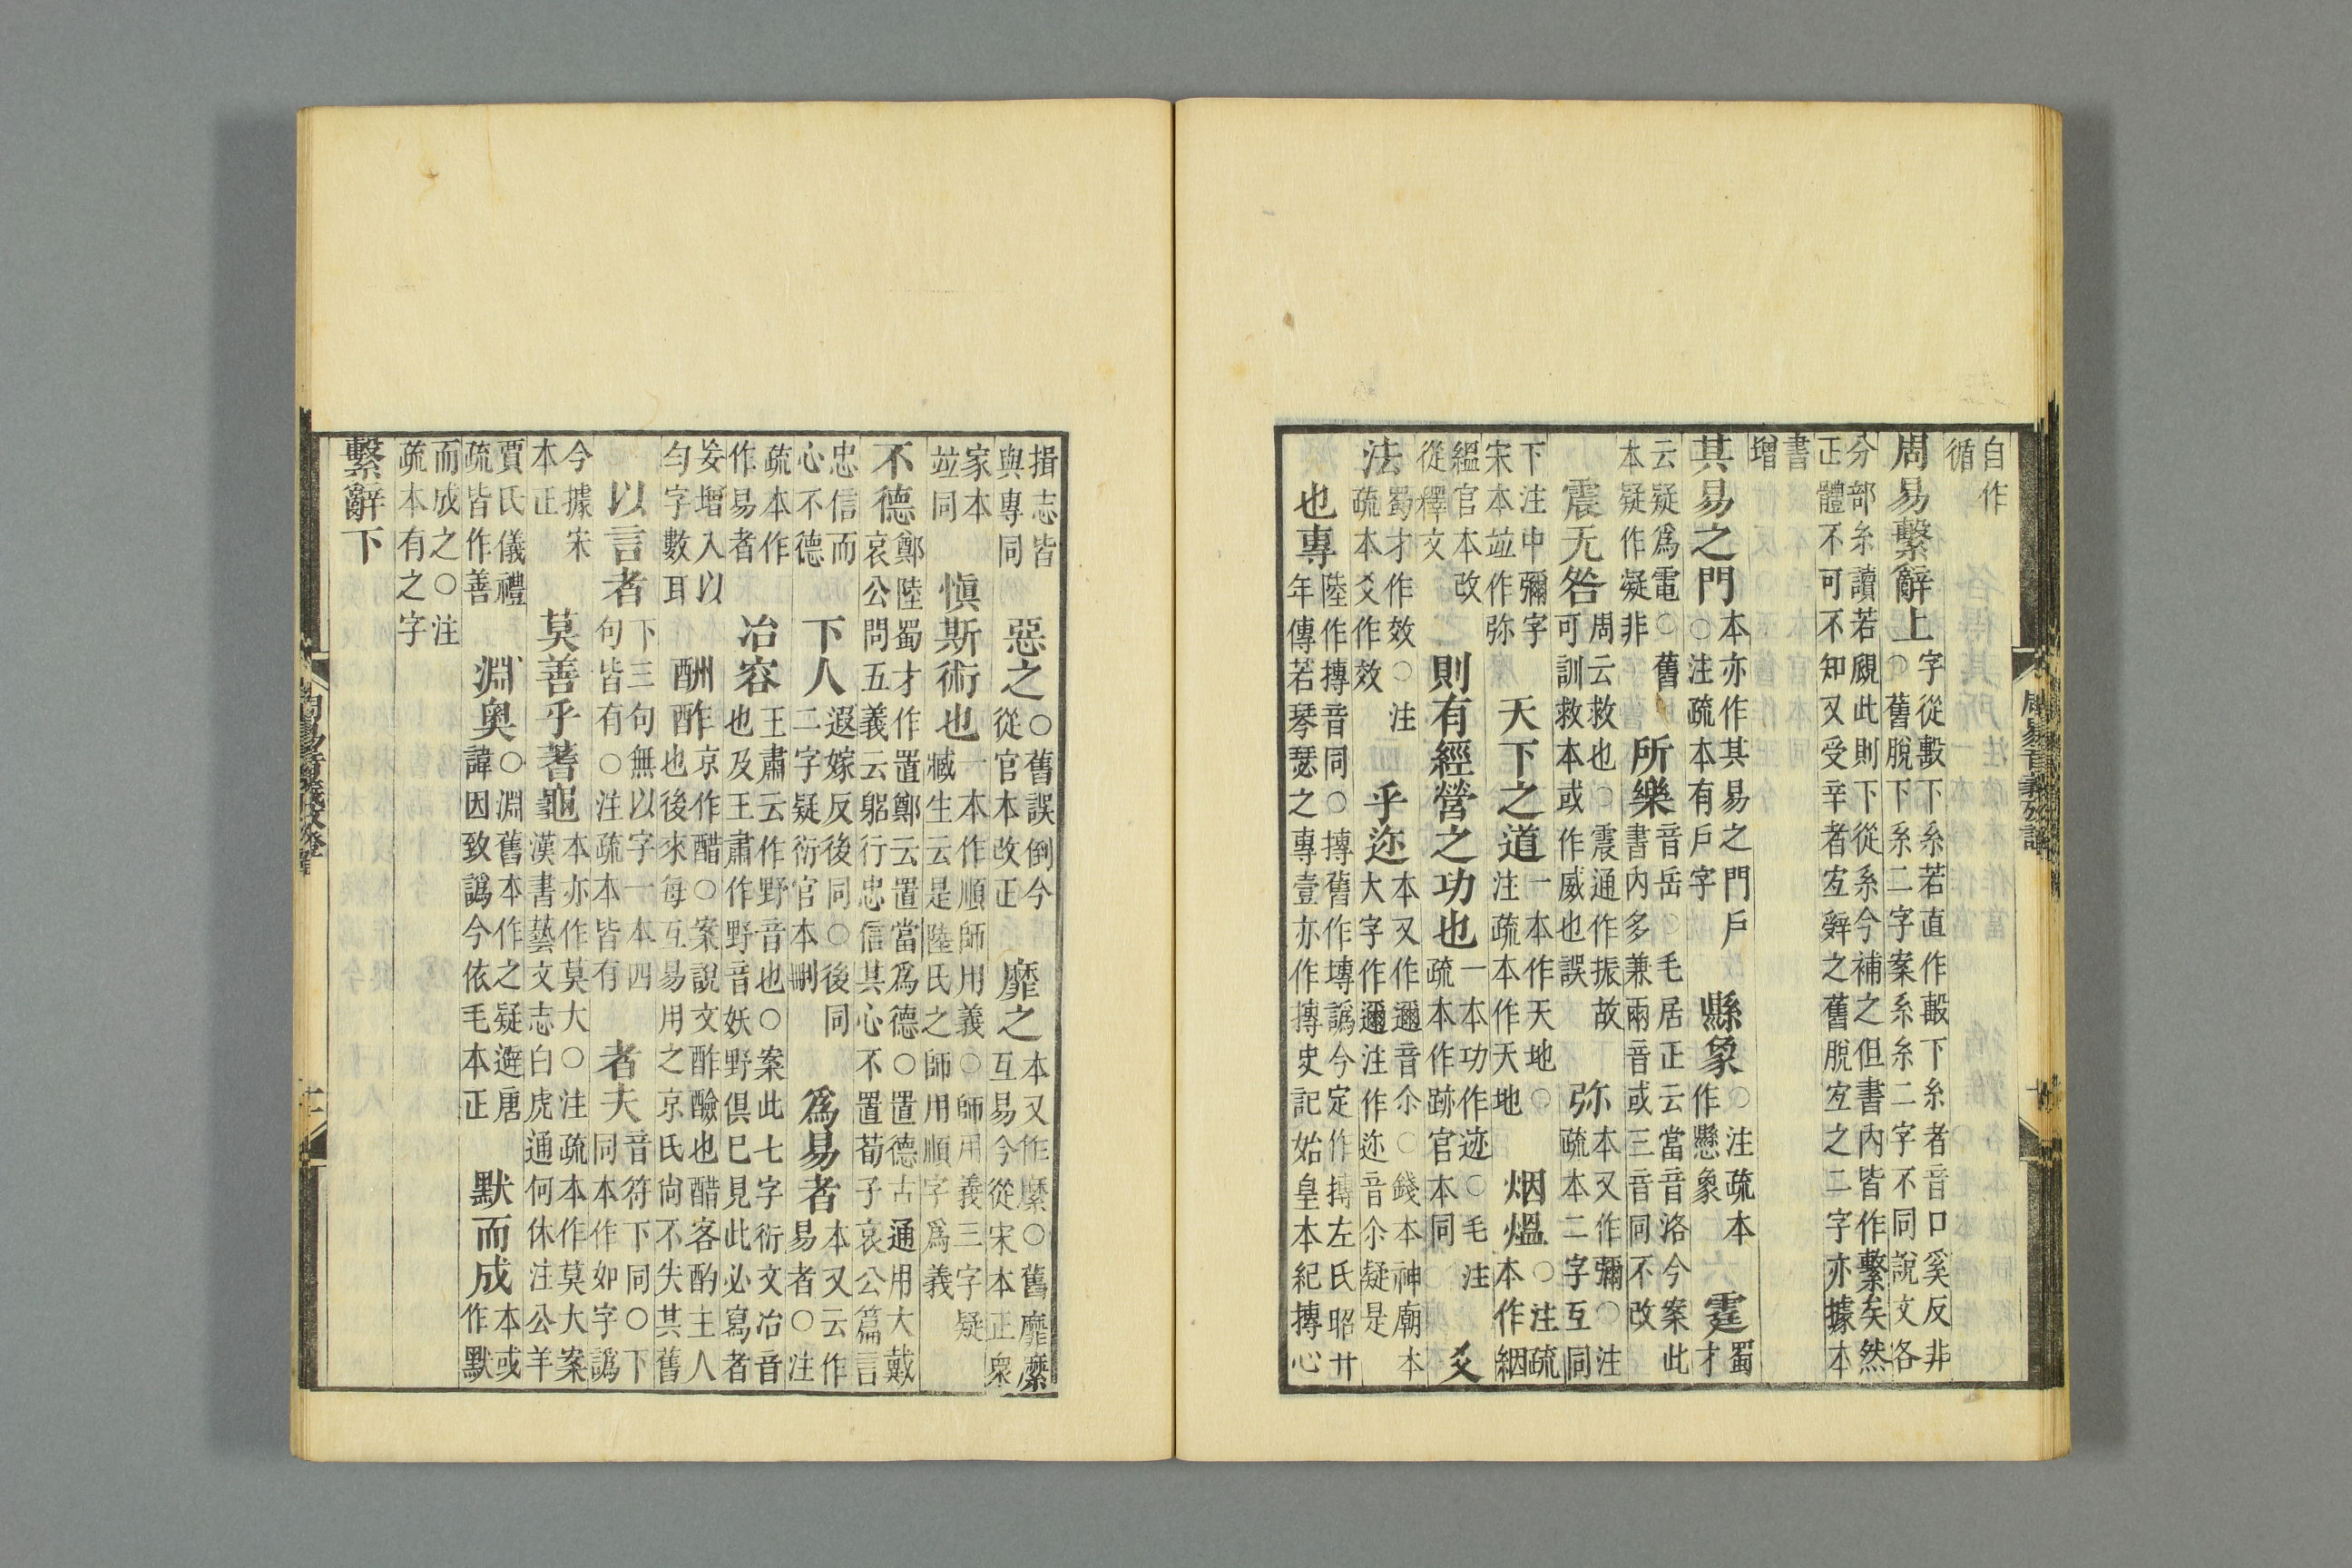 自作循
周易繫辭上字從毄下糸若直作毄下糸者音口奚反非○舊脫下糸二字案系糸二字不同說文各
分部糸讀若覛此則下從糸今補之但書內皆作繫矣然正體不可不知又受辛者宐辤之舊脫宐之二字亦據本
書增
其易之門本亦作其易之門戶○注疏本有戶字 縣象○注疏本作懸象 霆蜀才
云疑爲電○舊本疑作凝非 所樂音岳○毛居正云當音洛今案此書內多兼兩音或三音同不改
震无咎周云救也○震通作振故可訓救本或作威也誤 弥本又作彌○注疏本二字互同
下注中彌字宋本竝作弥 天下之道一本作天地○注疏本作天地 烟熅○注疏本作絪
縕官本改從釋文 則有經營之功也一本功作迹○毛注疏本作跡官本同 爻
法蜀才作效○注疏本爻作效 乎迩本又作邇音尒○錢本神廟本大字作邇注作迩音尒疑是
也專陸作摶音同○摶舊作塼譌今定作摶左氏昭廿年傳若琴瑟之專壹亦作摶史記始皇本紀摶心
揖志皆與專同 惡之○舊誤倒今從官本改正 靡之本又作縻○舊靡縻互易今從宋本正衆
家本竝同 愼斯術也一本作順師用義○師用義三字疑臧生云是陸氏之師用順字爲義
不德鄭陸蜀才作置鄭云置當爲德○置德古通用大戴哀公問五義云躬行忠信其心不置荀子哀公篇言
忠信而心不德 下人遐嫁反後同○後同二字疑衍官本刪 爲易者本又云作易者○注
疏本作作易者 冶容王肅云作野音也○案此七字衍文冶音也及王肅作野音妖野俱巳見此必寫者
妄增入以勻字數耳 酬酢京作醋○案說文酢醶也醋客酌主人也後來每互易用之京氏尙不失其舊
以言者下三句無以字一本四句皆有○注疏本皆有 者夫音符下同○下同本作如字譌
今據宋本正 莫善乎蓍龜本亦作莫大○注疏本作莫大案漢書藝文志白虎通何休注公羊
賈氏儀禮疏皆作善 淵奥○淵舊本作之疑避唐諱因致譌今依毛本正 默而成本或作默
而成之○注疏本有之字
繫辭下